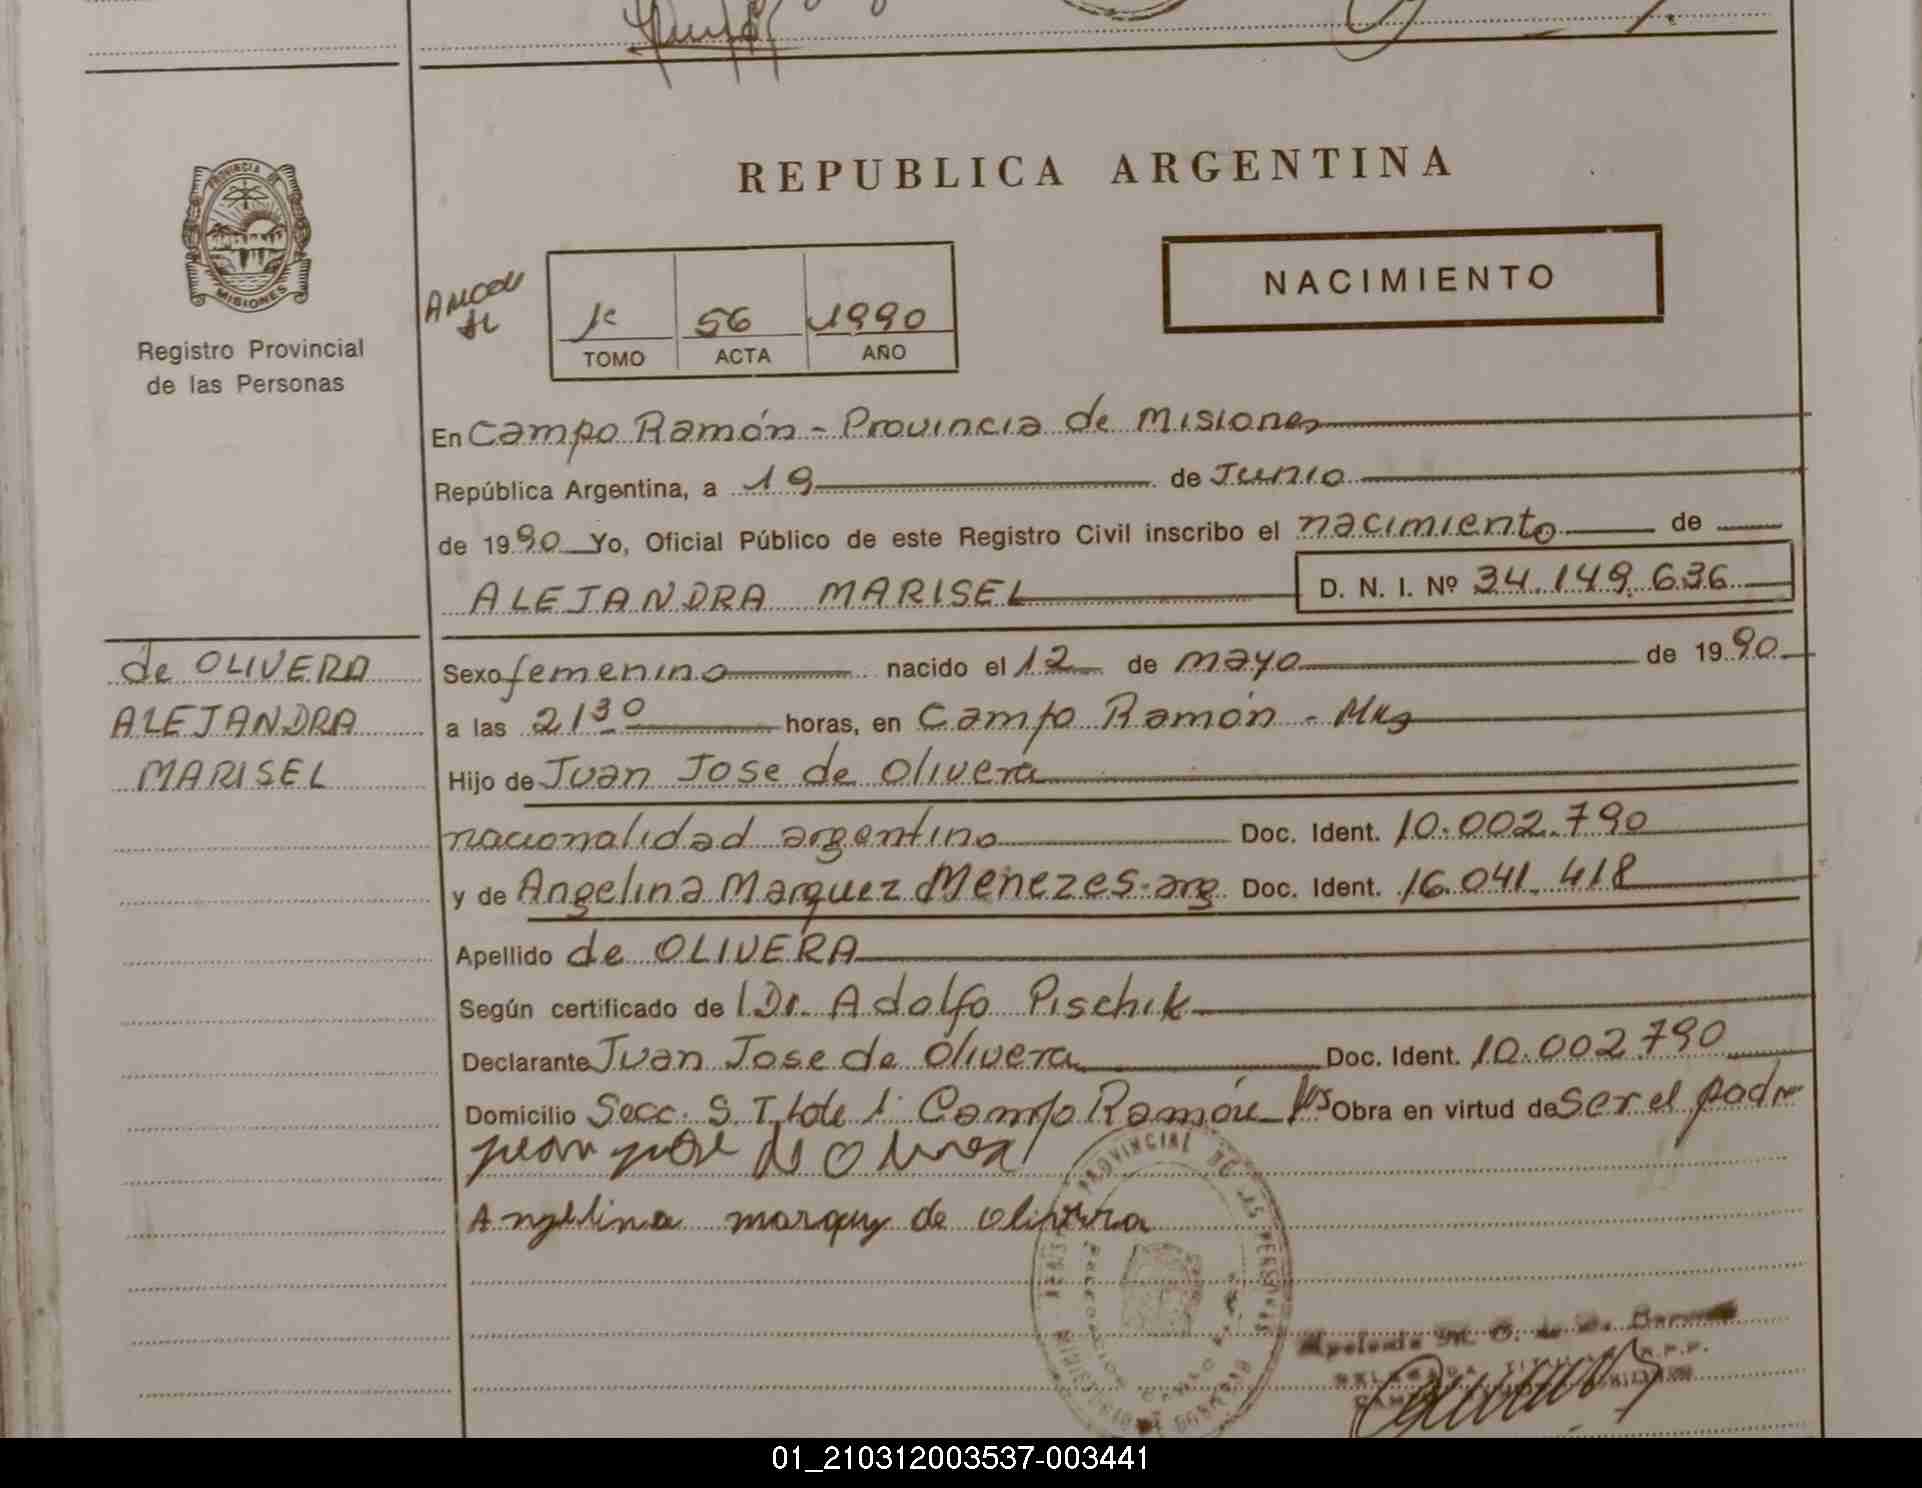 REPUBLICA ARGENTINA
PROVINCIA DE
MISIONES
Registro Provincial
de las Personas
NACIMIENTO
1º 56 1990
TOMO ACTA AÑO
En Campo Ramón - Provincia de Misiones
República Argentina, a 19 de Junio
de 1990 Yo, Oficial Público de este Registro Civil inscribo el nacimiento de
ALEJANDRA MARISEL D. N. I. Nº 34.149.636
de OLIVERA
ALEJANDRA
MARISEL
Sexo femenino nacido el 12 de mayo de 1990
a las 21 30 horas, en Campo Ramón - Mns
Hijo de Juan Jose de Olivera
nacionalidad argentino Doc. Ident. 10.002.790
y de Angelina Marquez Menezes - arg Doc. Ident. 16.041.418
Apellido de OLIVERA
Según certificado de Dr. Adolfo Pischik
Declarante Juan Jose de Olivera Doc. Ident. 10.002.790
Domicilio Secc. S.T. lote 1 Campo Ramón Obra en virtud de ser el padre
juan jose de Olivera
Angelina marquez de olivera
PROVINCIAL DE LAS PERSONAS
01_210312003537-003441